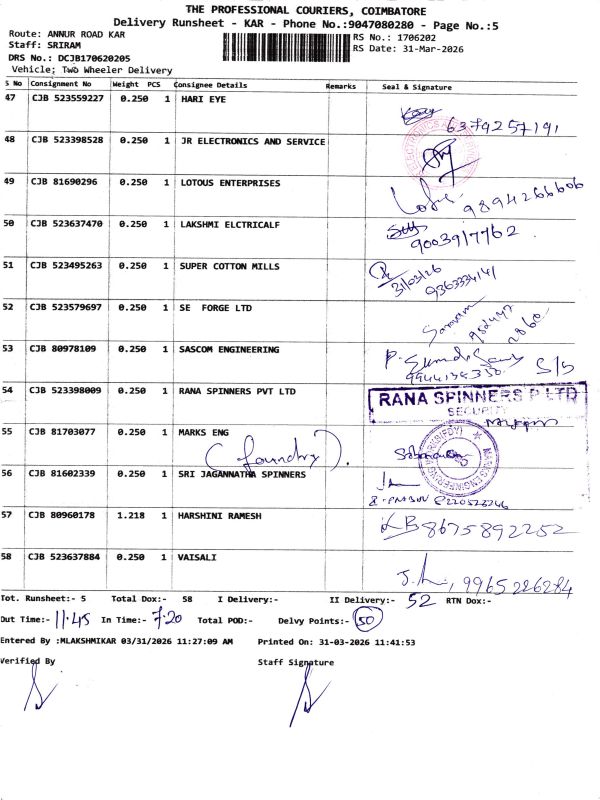 THE PROFESSIONAL COURIERS, COIMBATORE
Delivery Runsheet - KAR - Phone No.:9047080280 - Page No.:5
Route: ANNUR ROAD KAR
RS No.: 1706202
Staff: SRIRAM
RS Date: 31-Mar-2026
DRS No.: DCJB170620205
Vehicle; Two Wheeler Delivery
S No Consignment No Weight PCS Consignee Details Remarks Seal & Signature
47 CJB 523559227 0.250 1 HARI EYE
6379257191
48 CJB 523398528 0.250 1 JR ELECTRONICS AND SERVICE
49 CJB 81690296 0.250 1 LOTOUS ENTERPRISES
9894266606
50 CJB 523637470 0.250 1 LAKSHMI ELCTRICALF
9003917762
51 CJB 523495263 0.250 1 SUPER COTTON MILLS
31/03/26
9363334141
52 CJB 523579697 0.250 1 SE FORGE LTD
53 CJB 80978109 0.250 1 SASCOM ENGINEERING
S/S
54 CJB 523398009 0.250 1 RANA SPINNERS PVT LTD
RANA SPINNERS P LTD
SECURITY
55 CJB 81703077 0.250 1 MARKS ENG
(foundry).
56 CJB 81602339 0.250 1 SRI JAGANNATHA SPINNERS
57 CJB 80960178 1.218 1 HARSHINI RAMESH
8675892252
58 CJB 523637884 0.250 1 VAISALI
9965226284
Tot. Runsheet:- 5 Total Dox:- 58 I Delivery:- II Delivery:- 52 RTN Dox:-
Out Time:- 11.45 In Time:- 7.20 Total POD:- Delvy Points:- 50
Entered By :MLAKSHMIKAR 03/31/2026 11:27:09 AM Printed On: 31-03-2026 11:41:53
Verified By Staff Signature